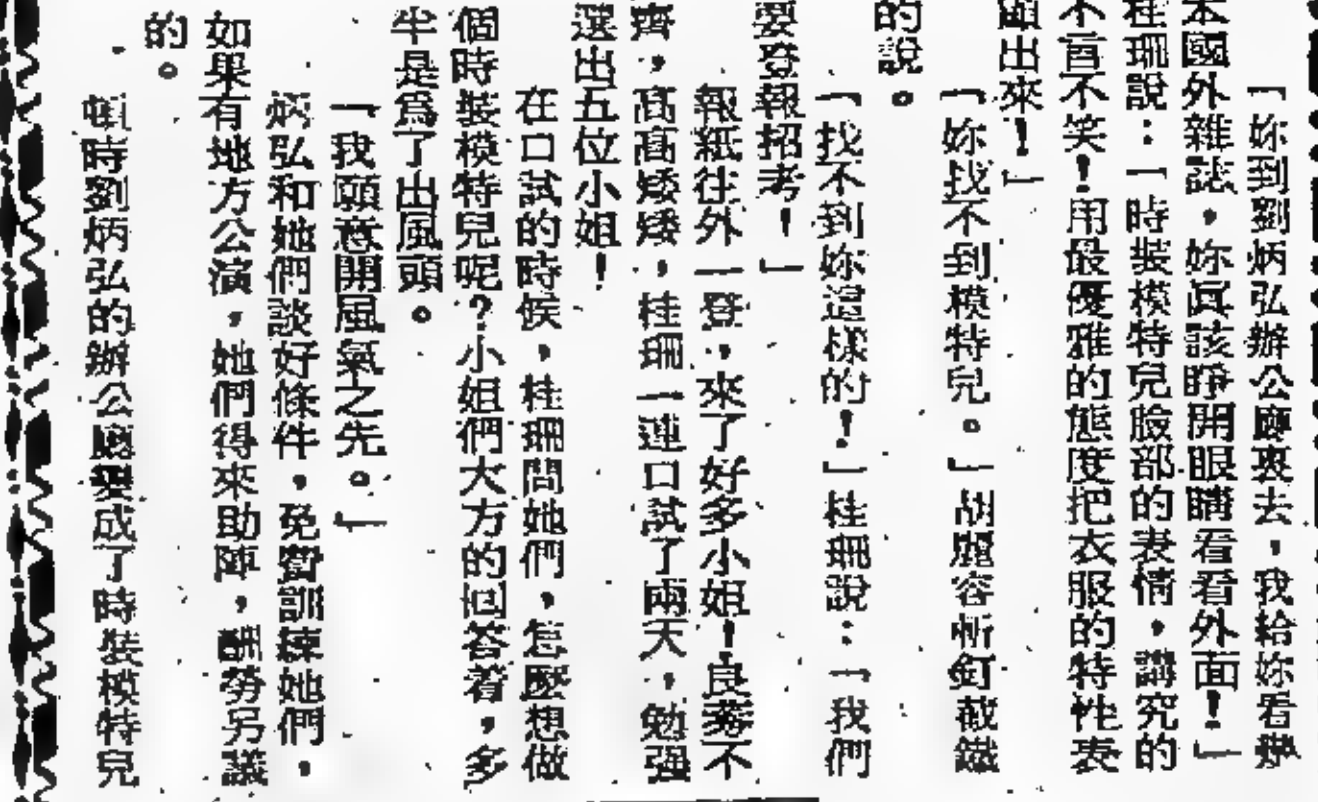 「妳到劉炳弘辦公廳裏去，我給妳看幾
本國外雜誌，妳眞該睜開眼睛看看外面！」
桂珊說：「時裝模特兒臉部的表情，講究的
不言不笑！用最優雅的態度把衣服的特性表
顯出來！」
「妳找不到模特兒。」胡麗容斬釘截鐵
的說。
「找不到妳這樣的！」桂珊說：「我們
要登報招考！」
報紙往外一登，來了好多小姐！良莠不
齊，高高矮矮，桂珊一連口試了兩天，勉强
選出五位小姐！
在口試的時候，桂珊問她們，怎麼想做
個時裝模特兒呢？小姐們大方的回答着，多
半是爲了出風頭。
「我願意開風氣之先。」
炳弘和她們談好條件，免費訓練她們，
如果有地方公演，她們得來助陣，酬勞另議
的。
頓時劉炳弘的辦公廳變成了時裝模特兒